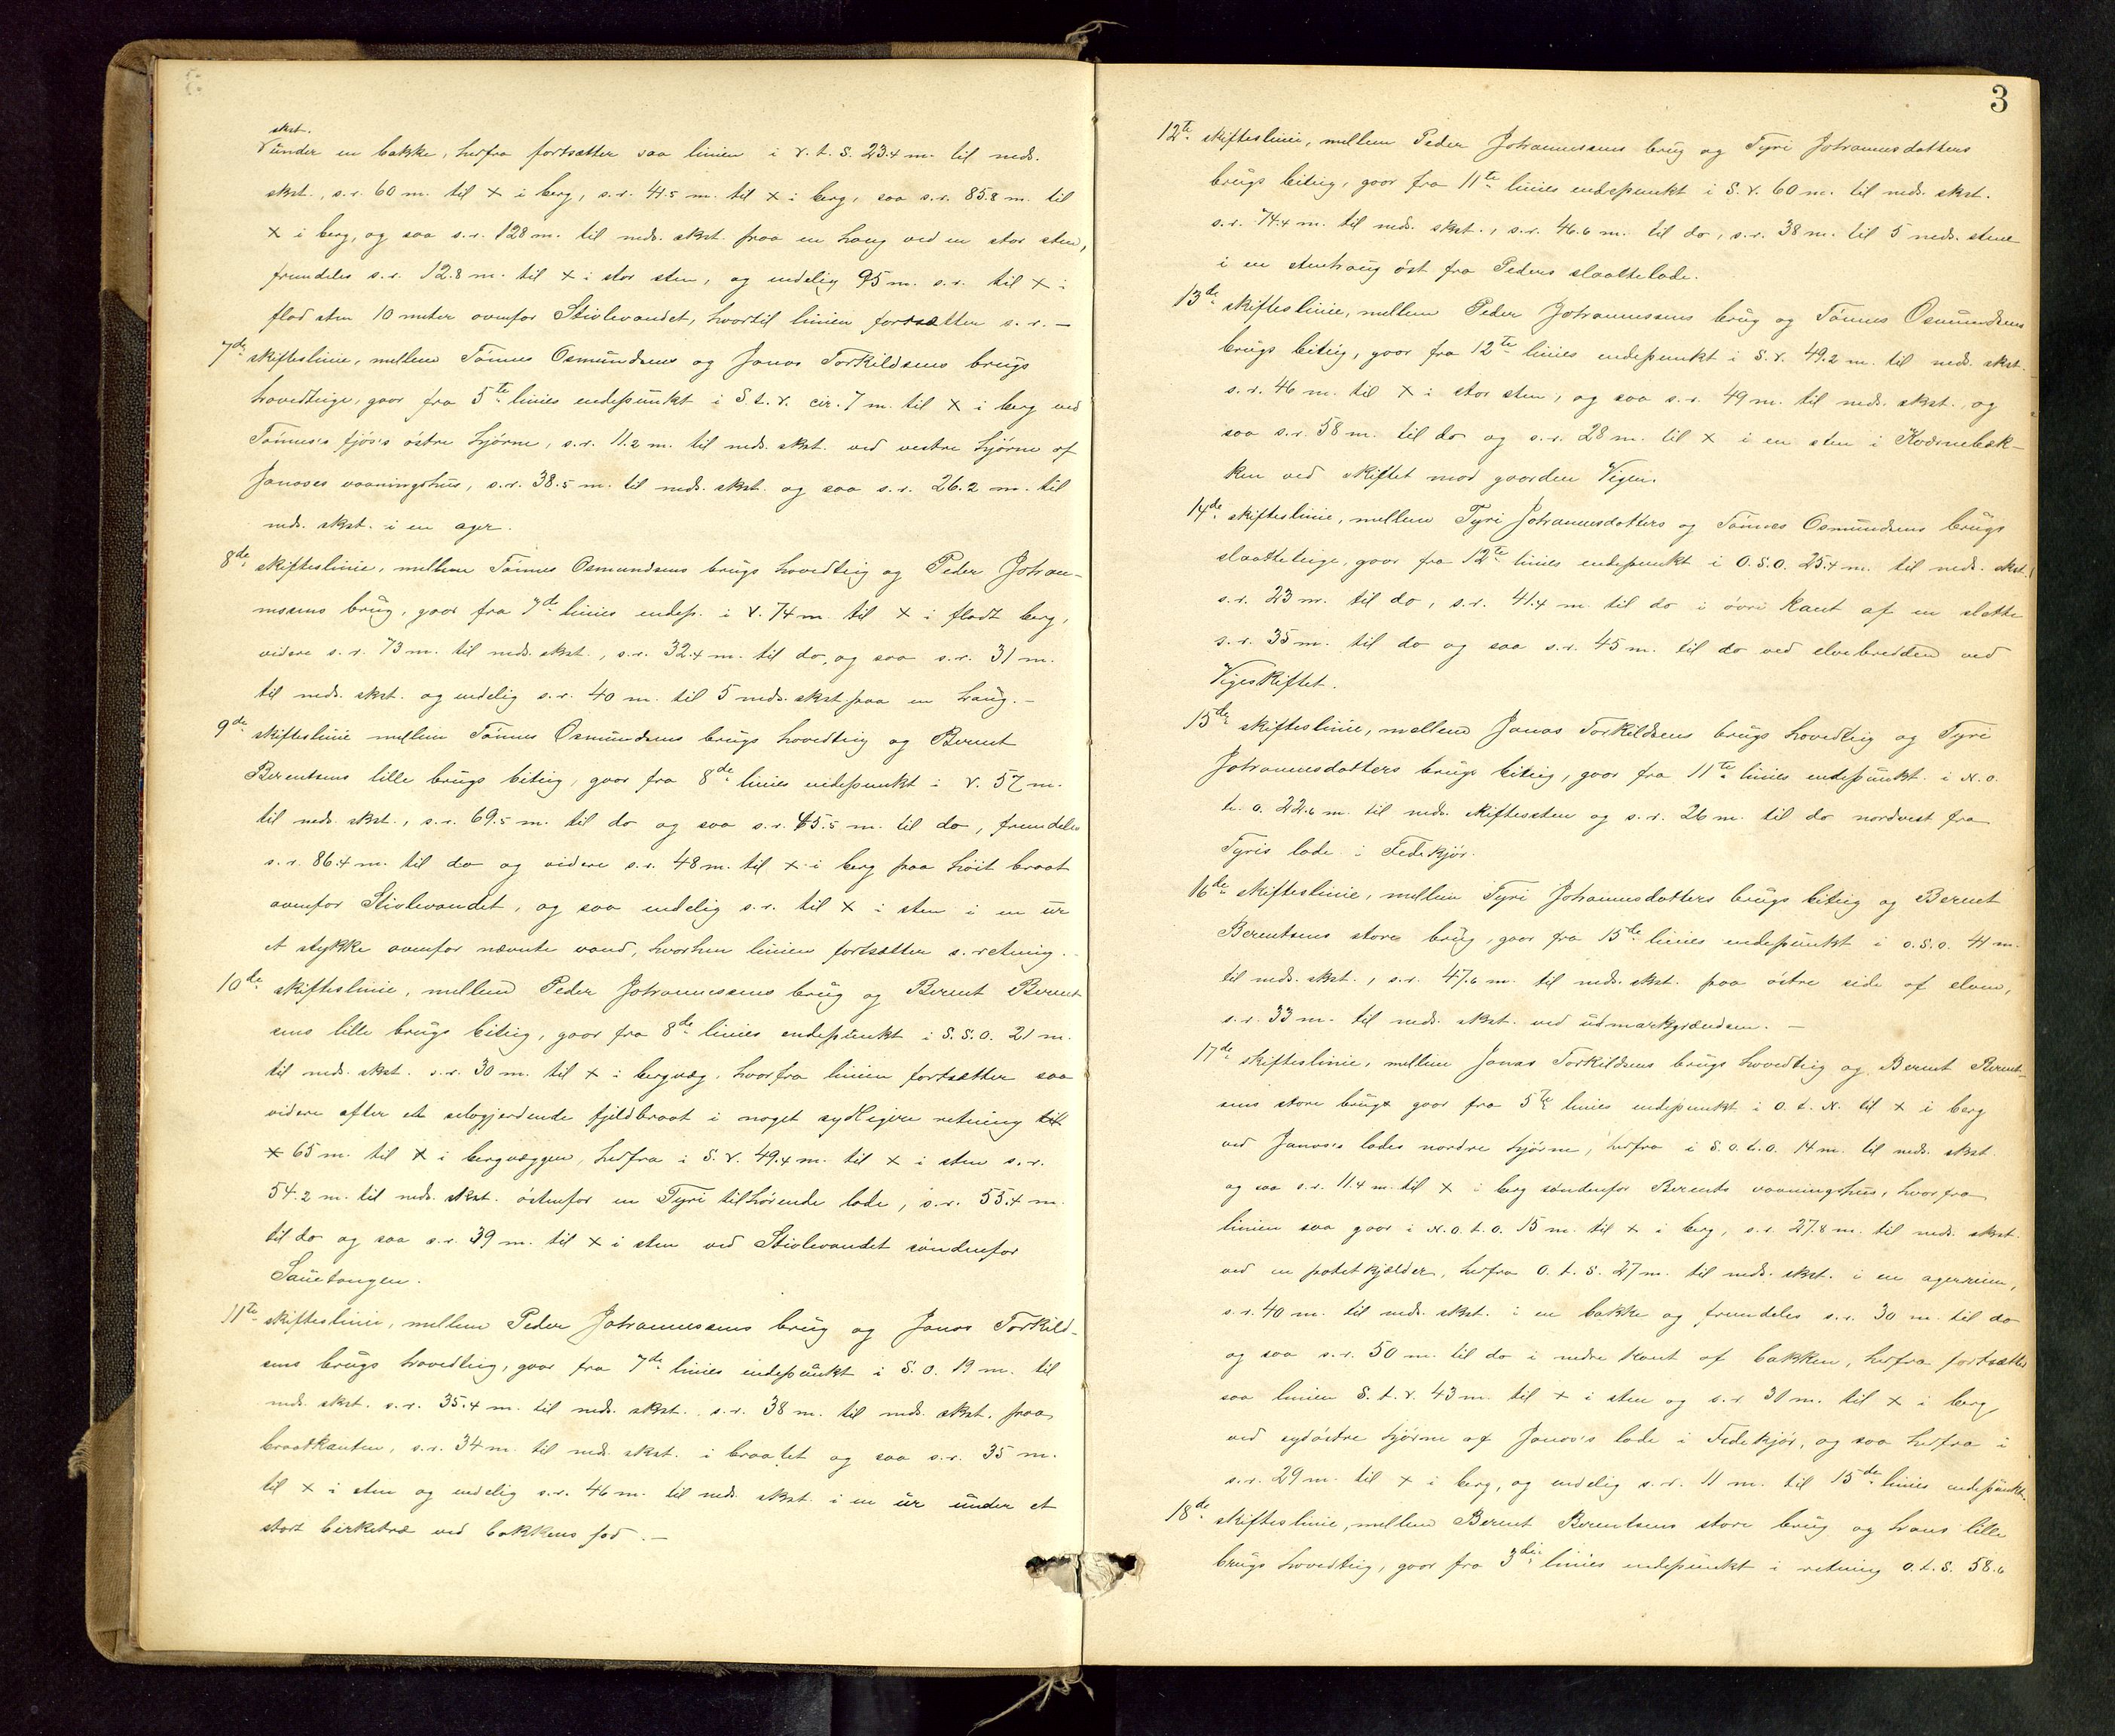 skst.
V under en bakke, herfra fortsætter saa linien i v. t. S. 23.4 m. til neds.
skst., s. r. 60 m. til × i berg, s. r. 41.5 m. til × i berg, saa s. r. 85.8 m. til
× i berg, og saa s. r. 128 m. til neds. skst. paa en haug ved en stor sten,
fremdeles s. r. 12.8 m. til × i stor sten, og endelig 95 m. s. r. til × i
flad sten 10 meter ovenfor Stivlevandet, hvortil linien fortsætter s. r. —
7de skifteslinie, mellem Tønnes Osmundsens og Jonas Torkildsens brugs
hovedteige, gaar fra 5te linies endepunkt i S. t. V. cir. 7 m. til × i berg ved
Tønnes's fjøs's østre hjørne, s. r. 11.2 m. til neds. skst. ved vestre hjørne af
Jonases vaaningshus, s. r. 38.5 m. til neds. skst. og saa s. r. 26.2 m. til
neds. skst. i en ager.
8de skifteslinie, mellem Tønnes Osmundsens brugs hovedteig og Peder Johan-
nesens brug, gaar fra 7de linies endep. i V. 74 m. til × i fladt berg,
videre s. r. 73 m. til neds. skst., s. r. 32.4 m. til do, og saa s. r. 31 m.
til neds. skst. og endelig s. r. 40 m. til 5 neds. skst paa en haug. —
9de skifteslinie mellem Tønnes Osmundsens brugs hovedteig og Bernt
Berentsens lille brugs biteig, gaar fra 8de linies endepunkt i V. 57 m.
til neds. skst., s. r. 69.5 m. til do og saa s. r. 45.5 m. til do, fremdeles
s. r. 86.4 m. til do og videre s. r. 48 m. til × i berg paa høit braat
ovenfor Stivlevandet, og saa endelig s. r. til × i sten i en ur
et stykke ovenfor nævnte vand, hvorhen linien fortsætter s. retning.
10de skifteslinie, mellem Peder Johannessens brug og Bernt Bernt
sens lille brugs biteig, gaar fra 8de linies endepunkt i S. S. O. 21 m.
til neds. skst. s. r. 30 m. til × i bergvæg, hvorfra linien fortsætter saa
videre efter et selvgjerdende fjeldbraat i noget sydligere retning till
× 65 m. til × i bergvæggen, herfra i S. V. 49.4 m. til × i sten s. r.
54.2 m. til neds. skst. østenfor en Tyri tilhørende lade, s. r. 55.4 m.
til do og saa s. r. 39 m. til × i sten ved Stivlevandet søndenfor
Sauetangen.
11te skifteslinie, mellem Peder Johannessens brug og Jonas Torkild-
sens brugs hovedteig, gaar fra 7de linies endepunkt i S. O. 19 m. til
neds. skst. s. r. 35.4 m. til neds. skst. s. r. 38 m. til neds. skst. paa
braatkanten, s. r. 34 m. til neds. skst. i braatet og saa s. r. 35 m.
til × i sten og endelig s. r. 46 m. til neds. skst. i en ur under et
stort birketræ ved bakkens fod. —
3
12te skifteslinie, mellem Peder Johannessens brug og Tyri Johannesdatters
brugs biteig, gaar fra 11te linies endepunkt i S. V. 60 m. til neds. skst.
s. r. 74.4 m. til neds. skst., s. r. 46.6 m. til do, s. r. 38 m. til 5 neds. stene
i en stenhaug øst fra Peders slaattelade.
13de skifteslinie, mellem Peder Johannessens brug og Tønnes Osmundsens
brugs biteig, gaar fra 12te linies endepunkt i S. V. 49.2 m. til neds. skst.
s. r. 46 m. til × i stor sten, og saa s. r. 49 m. til neds. skst., og
saa s. r. 58 m. til do og s. r. 28 m. til × i en sten i Kværnebæk-
ken ved skiftet mod gaarden Vigen.
14de skifteslinie, mellem Tyri Johannesdatters og Tønnes Osmundsens brugs
slaatteteige, gaar fra 12te linies endepunkt i O. S. O. 25.4 m. til neds. skst.
s. r. 23 m. til do, s. r. 41.4 m. til do i øvre kant af en slette
s. r. 35 m. til do og saa s. r. 45 m. til do ved elvebredden ved
Vigeskiftet.
15de skifteslinie, mellem Jonas Torkildsens brugs hovedteig og Tyri
Johannesdatters brugs biteig, gaar fra 11te linies endepunkt i N. O.
t. O. 22.6 m. til neds. skiftessten og s. r. 26 m. til do nordvest fra
Tyris lade i Fedekjør.
16de skifteslinie, mellem Tyri Johannesdatters brugs biteig og Bernt
Berentsens store brug, gaar fra 15de linies endepunkt i O. S. O. 41 m.
til neds. skst., s. r. 47.6 m. til neds. skst. paa østre side af elven,
s. r. 33 m. til neds. skst. ved udmarksgrændsen. —
17de skifteslinie, mellem Jonas Torkildsens brugs hovedteig og Bernt Bernt-
sens store brugs gaar fra 5te linies endepunkt i O. t. N. til × i berg
ved Jonas's lades nordre hjørne, herfra i S. O. t. O. 14 m. til neds. skst.
og saa s. r. 11.4 m. til × i berg søndenfor Bernts vaaningshus, hvorfra
linien saa gaar i N. O. t. O. 15 m. til × i berg, s. r. 27.8 m. til neds. skst.
ved en potetkjælder, herfra O. t. S. 27 m. til neds. skst. i en agerrein,
s. r. 40 m. til neds. skst. i en bakke og fremdeles s. r. 30 m. til do
og saa s. r. 50 m. til do i nedre kant af bakken, herfra fortsætter
saa linien S. t. V. 43 m. til × i sten og s. r. 31 m. til × i berg
ved sydøstre hjørne af Jonas's lade i Fedekjør, og saa herfra i
s. r. 29 m. til × i berg, og endelig s. r. 11 m. til 15de linies endepunkt.
18de skifteslinie, mellem Bernt Berentsens store brug og hans lille
brugs hovedteig, gaar fra 3die linies endepunkt i retning O. t. S. 58.6